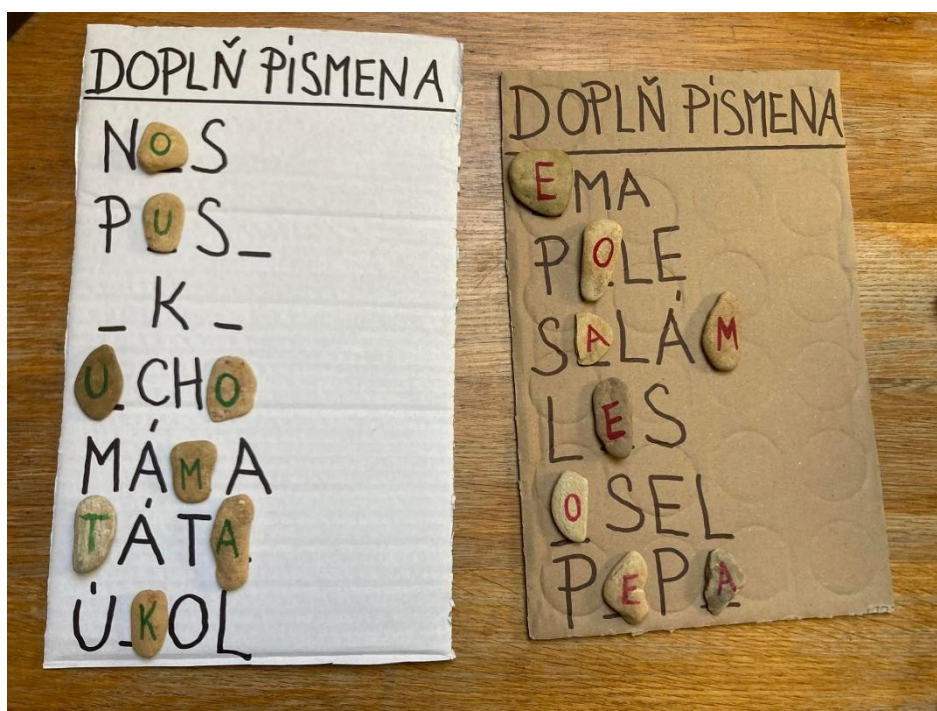 DOPLŇ PÍSMENA
NOS
PUS_
_ K _
UCHO
MÁMA
TÁTA
ÚKOL
DOPLŇ PÍSMENA
EMA
POLE
SALÁM
LES
OSEL
PEPA